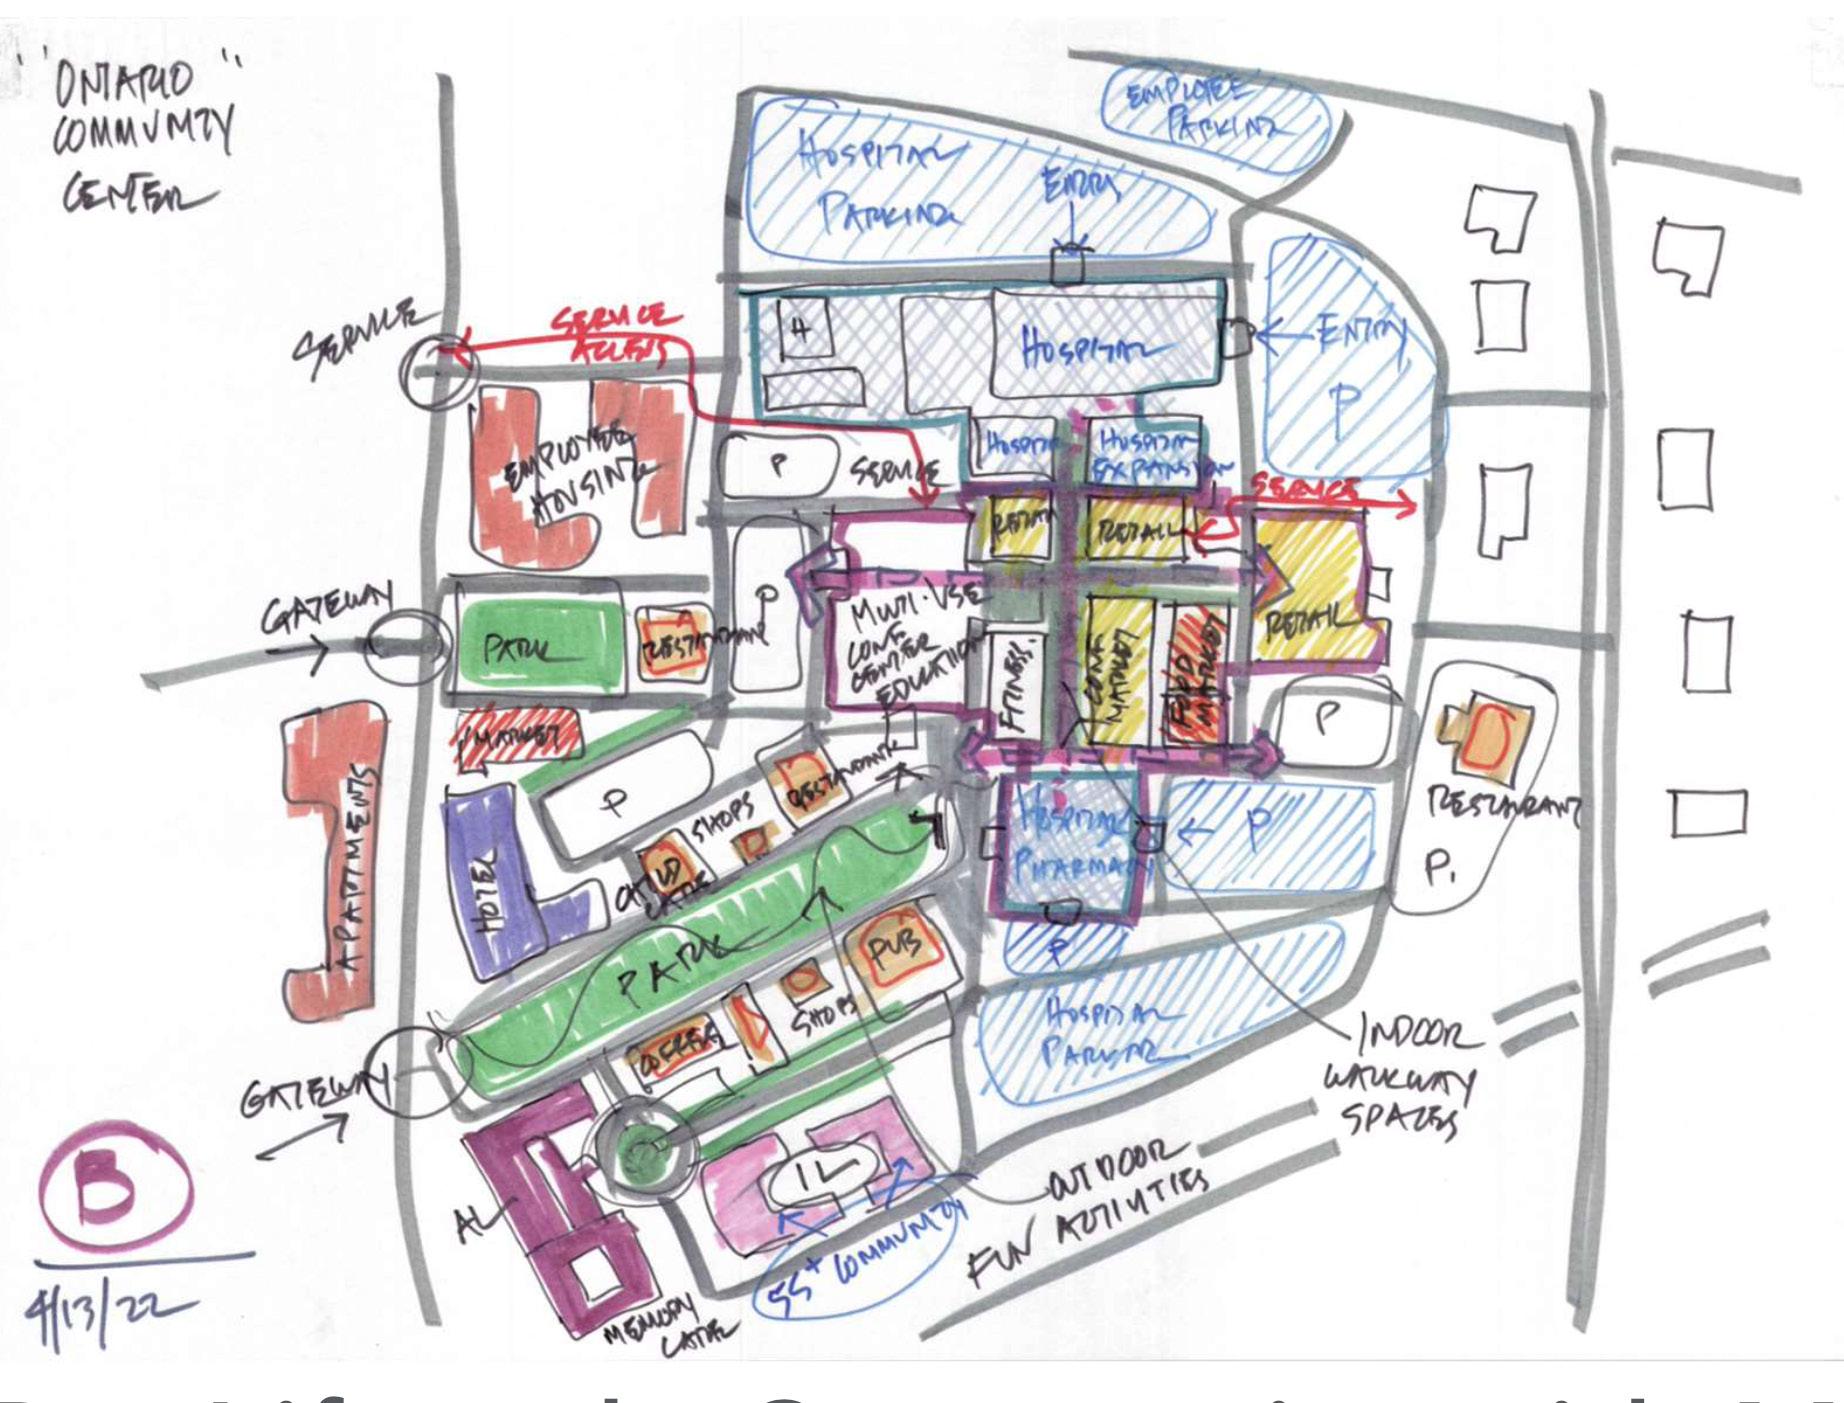 "ONTARIO"
COMMUNITY
CENTER
EMPLOYEE
PARKING
HOSPITAL
PARKING
ENTRY
SERVICE
SERVICE
ACCESS
H
HOSPITAL
ENTRY
P
EMPLOYEE
HOUSING
P
SERVICE
HOSPITAL
HOSPITAL
EXPANSION
SERVICE
RETAIL
RETAIL
RETAIL
GATEWAY
PARK
RESTAURANT
P
MULTI-USE
CONF.
CENTER
EDUCATION
FITNESS.
CONF.
MARKET
FOOD
MARKET
P
MARKET
P
SHOPS
RESTAURANT
CHILD
CARE
APARTMENTS
HOTEL
PARK
HOSPITAL
PHARMACY
P
RESTAURANT
P.
PUB
P
SHOPS
COFFEE
HOSPITAL
PARKING
GATEWAY
INDOOR
WALKWAY
SPACES
AL
IL
OUTDOOR
FUN ACTIVITIES
55+ COMMUNITY
MEMORY
CARE
B
4/13/22